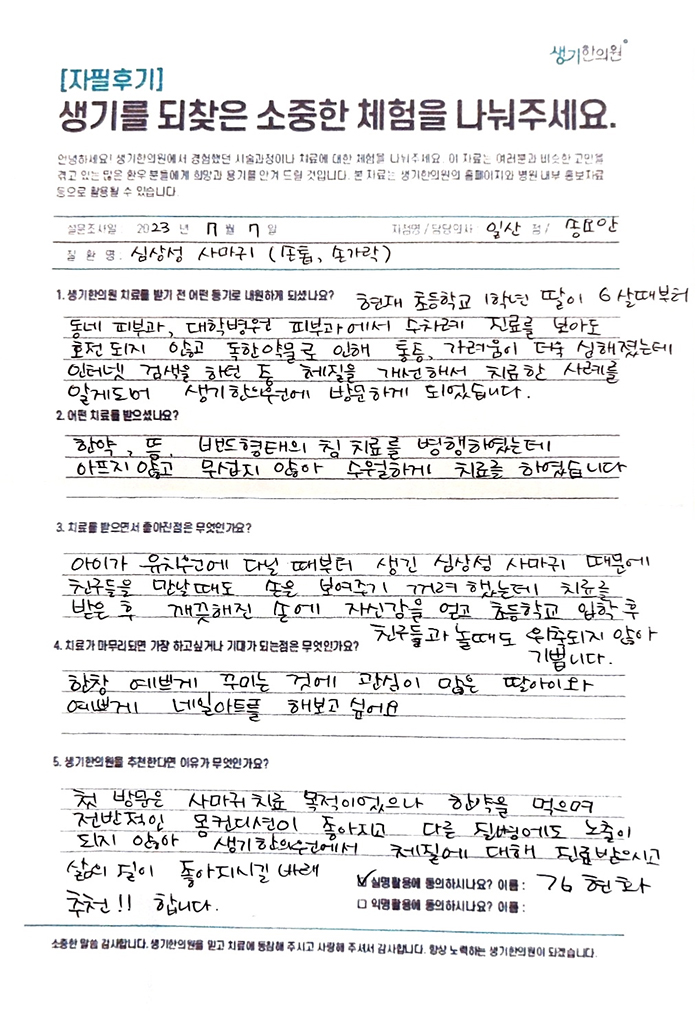 생기한의원
[자필후기]
생기를 되찾은 소중한 체험을 나눠주세요.
안녕하세요! 생기한의원에서 경험했던 시술과정이나 치료에 대한 체험을 나눠주세요. 이 자료는 여러분과 비슷한 고민을
겪고 있는 많은 환우 분들에게 희망과 용기를 안겨 드릴 것입니다. 본 자료는 생기한의원의 홈페이지와 병원 내부 홍보자료
등으로 활용될 수 있습니다.
설문조사일 2023 년 7 월 7 일 지점명 / 담당의사 일산 점 /
질 환 명 : 심상성 사마귀 (손톱, 손가락)
1. 생기한의원 치료를 받기 전 어떤 동기로 내원하게 되셨나요? 현재 초등학교 1학년 딸이 6살때부터
동네 피부과, 대학병원 피부과에서 수차례 진료를 보아도
호전되지 않고 독한약물로 인해 통증, 가려움이 더욱 심해졌는데
인터넷 검색을 하던 중 체질을 개선해서 치료한 사례를
알게되어 생기한의원에 방문하게 되었습니다.
2. 어떤 치료를 받으셨나요?
한약, 뜸, 밴드형태의 침 치료를 병행하였는데
아프지 않고 무섭지 않아 수월하게 치료를 하였습니다
3. 치료를 받으면서 좋아진점은 무엇인가요?
아이가 유치원에 다닐 때부터 생긴 심상성 사마귀 때문에
친구들을 만날때도 손을 보여주기 꺼려했는데 치료를
받은 후 깨끗해진 손에 자신감을 얻고 초등학교 입학 후
친구들과 놀때도 위축되지 않아
기쁩니다.
4. 치료가 마무리되면 가장 하고싶거나 기대가 되는점은 무엇인가요?
한창 예쁘게 꾸미는 것에 관심이 많은 딸아이와
예쁘게 네일아트를 해보고 싶어요
5. 생기한의원를 추천한다면 이유가 무엇인가요?
첫 방문은 사마귀치료 목적이었으나 한약을 먹으며
전반적인 몸컨디션이 좋아지고 다른 질병에도 노출이
되지 않아 생기한의원에서 체질에 대해 진료받으시고
삶의 질이 좋아지시길 바래
추천!! 합니다.
☑ 실명활용에 동의하시나요? 이름 : 김현화
☐ 익명활용에 동의하시나요? 이름 :
소중한 말씀 감사합니다. 생기한의원을 믿고 치료에 동참해 주시고 사랑해 주셔서 감사합니다. 항상 노력하는 생기한의원이 되겠습니다.